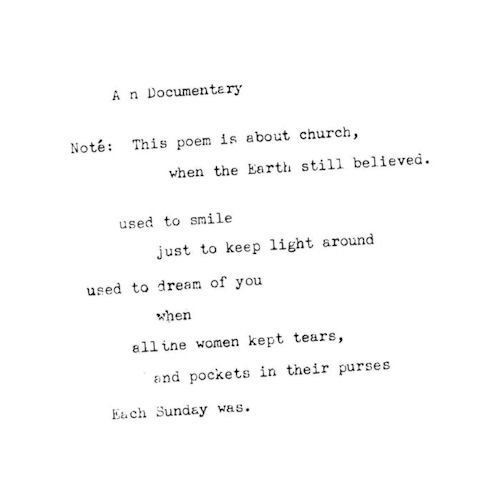 A n Documentary
Noté: This poem is about church,
when the Earth still believed.
used to smile
just to keep light around
used to dream of you
when
all the women kept tears,
and pockets in their purses
Each Sunday was.